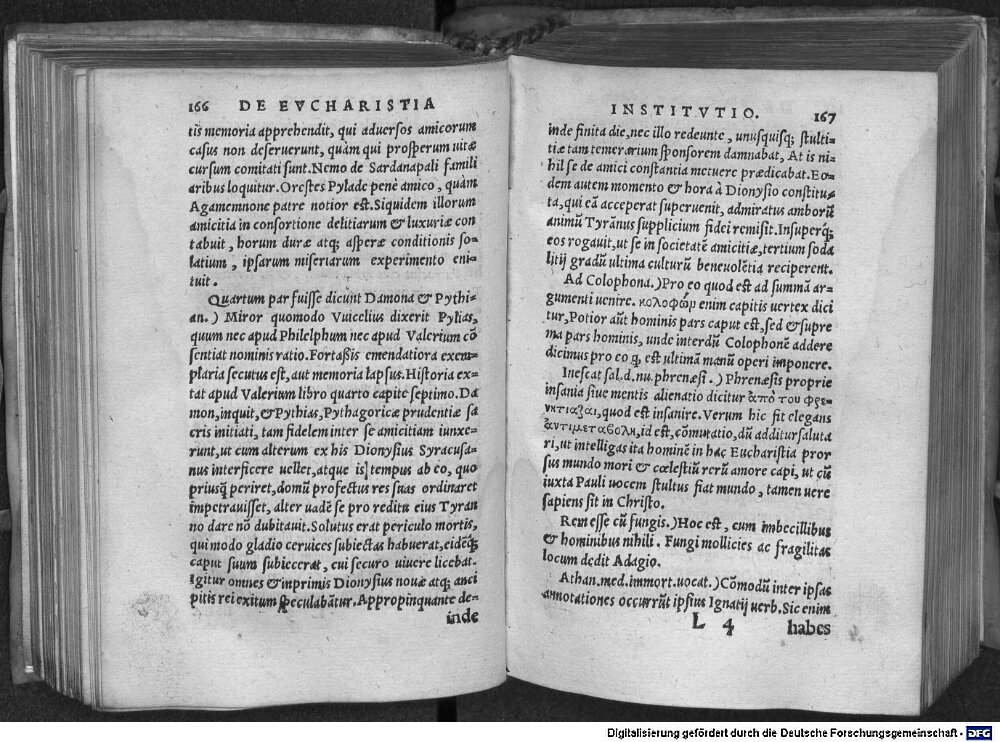 166 DE EVCHARISTIA
tis memoria apprehendit, qui aduersos amicorum
casus non deseruerunt, quàm qui prosperum uitæ
cursum comitati sunt. Nemo de Sardanapali famili
aribus loquitur. Orestes Pylade penè amico, quàm
Agamemnone patre notior est. Siquidem illorum
amicitia in consortione delitiarum & luxuriæ con
tabuit, horum duræ atq; asperæ conditionis so-
latium, ipsarum miseriarum experimento eni-
tuit.
Quartum par fuisse dicunt Damona & Pythi-
an.) Miror quomodo Vuicelius dixerit Pylias,
quum nec apud Philelphum nec apud Valerium cō
sentiat nominis ratio. Fortaßis emendatiora exem-
plaria secutus est, aut memoria lapsus. Historia ex-
tat apud Valerium libro quarto capite septimo. Da
mon, inquit, & Pythias, Pythagoricæ prudentiæ sa
cris initiati, tam fidelem inter se amicitiam iunxe-
runt, ut cum alterum ex his Dionysius Syracusa-
nus interficere uellet, atque is tempus ab eo, quo
priusq̃ periret, domū profectus res suas ordinaret
impetrauisset, alter uadē se pro reditu eius Tyran
no dare nō dubitauit. Solutus erat periculo mortis,
qui modo gladio ceruices subiectas habuerat, eidēq;
caput suum subiecerat, cui securo uiuere licebat.
Igitur omnes & inprimis Dionysius nouæ atq; anci
pitis rei exitum speculabātur. Appropinquante de-
inde
INSTITVTIO. 167
inde finita die, nec illo redeunte, unusquisq; stulti-
tiæ tam temerarium sponsorem damnabat, At is ni-
hil se de amici constantia metuere prædicabat. Eo-
dem autem momento & hora à Dionysio constitu-
ta, qui eā acceperat superuenit, admiratus amborū
animū Tyrānus supplicium fidei remisit. Insuperq;
eos rogauit, ut se in societatē amicitiæ, tertium soda
litij gradū ultima culturū beneuolētia reciperent.
Ad Colophona.) Pro eo quod est ad summā ar-
gumenti uenire. κολοφώρ enim capitis uertex dici
tur, Potior aūt hominis pars caput est, sed & supre
ma pars hominis, unde interdū Colophonē addere
dicimus pro eo q̃ est ultimā manū operi imponere.
Inescat sal.d.nu.phrenæsi.) Phrenæsis propriè
insania siue mentis alienatio dicitur ἀπὸ του φρε-
νητιαζαι, quod est insanire. Verum hic fit elegans
ἀντιμεταβολη, id est, cōmutatio, dū additur saluta
ri, ut intelligas ita hominē in hac Eucharistia pror
sus mundo mori & cœlestiū rerū amore capi, ut cū
iuxta Pauli uocem stultus fiat mundo, tamen uere
sapiens sit in Christo.
Rem esse cū fungis.) Hoc est, cum imbecillibus
& hominibus nihili. Fungi mollicies ac fragilitas
locum dedit Adagio.
Athan.med.immort.uocat.) Cōmodū inter ipsas
annotationes occurrūt ipsius Ignatij uerb. Sic enim
L 4 habes
Digitalisierung gefördert durch die Deutsche Forschungsgemeinschaft - DFG